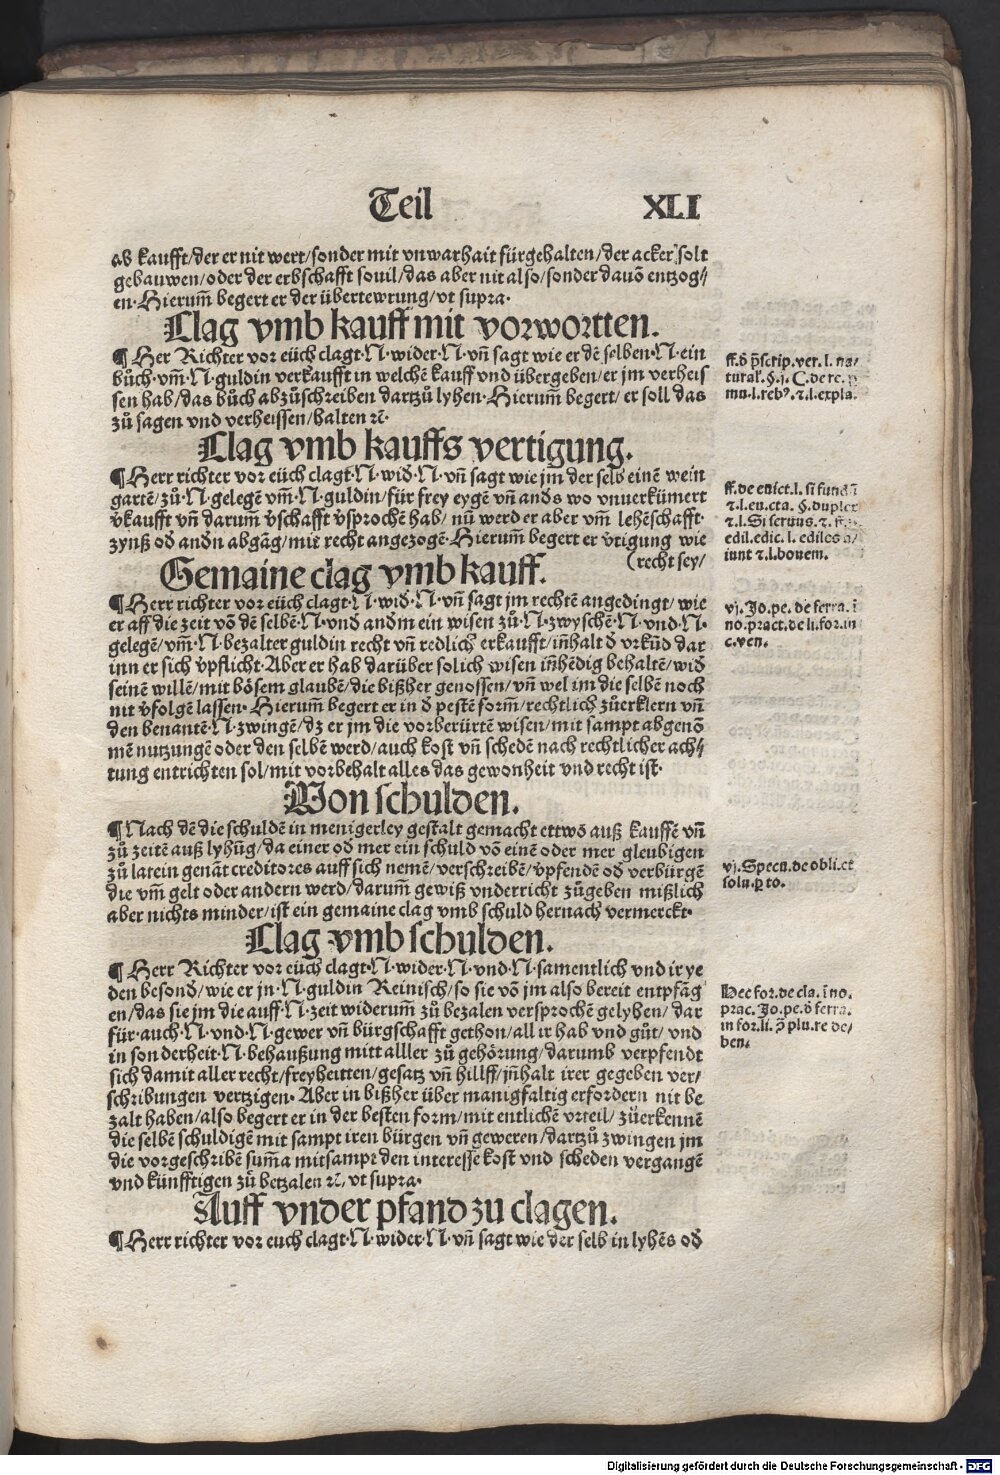 Teil XLI
ab kaufft/der er nit wert/sonder mit vnwarhait fürgehalten/der acker solt
gebauwen/oder der erbschafft souil/das aber nit also/sonder dauō entzog⸗
en·Hierum̄ begert er der übertewrung/vt supra·
Clag vmb kauff mit vorwortten.
¶ Her Richter vor eüch clagt·N·wider·N·vn̄ sagt wie er dē selben·N·ein
bůch·vm̄·N·guldin verkaufft in welchē kauff vnd übergeben/er jm verheis
sen hab/das bůch abzůschreiben dartzů lyhen·Hierum̄ begert/er soll das
zů sagen vnd verheissen/halten ⁊c̄·
ff.d̄ p̄scrip.ver.l.na/
tural'.§.j.C.de re.p
mu.l.reb⁹.⁊.l.expla.
Clag vmb kauffs vertigung.
¶Herr richter vor eüch clagt·N·wid̄·N·vn̄ sagt wie jm der selb einē wein
gartē/zů·N·gelegē vm̄·N·guldin/für frey eygē vn̄ anđs wo vnuerkümert
v̄kaufft vn̄ darum̄ v̄schafft v̄sprochē hab/nū werd er aber vm̄ lehēschafft
zynß od̄ anđn abgāg/mit recht angezogē·Hierum̄ begert er v̄tigung wie
(recht sey/
ff.de euict.l.si fundū
⁊.l.eu.cta.§.duplex
⁊.l.Si seruus.⁊.ff.
edil.edic.l.ediles a/
iunt ⁊.l.bouem.
Gemaine clag vmb kauff.
¶Herr richter vor eüch clagt·N·wid̄·N·vn̄ sagt jm rechtē angedingt/wie
er aff die zeit vō dē selbē·N·vnd anđm ein wisen zů·N·zwyschē·N·vnd·N·
gelegē/vm̄·N·bezalter guldin recht vn̄ redlich erkaufft/in̄halt d̄ vrkūd dar
inn er sich v̄pflicht·Aber er hab darüber solich wisen in̄hēdig behaltē/wid̄
seinē willē/mit bösem glaubē/die bißher genossen/vn̄ wel im die selbē noch
nit v̄folgē lassen·Hierum̄ begert er in d̄ pestē form̄/rechtlich zůerklern vn̄
den benantē·N·zwingē/dz er jm die vorberürtē wisen/mit sampt abgenō
mē nutzungē oder den selbē werd/auch kost vn̄ schedē nach rechtlicher ach⸗
tung entrichten sol/mit vorbehalt alles das gewonheit vnd recht ist·
vj.Jo.pe.de ferra.ī
no.pract.de li.for.in
c.ven.
Von schulden.
¶Nach dē die schuldē in menigerley gestalt gemacht ettwō auß kauffē vn̄
zů zeitē auß lyhūg/da einer od̄ mer ein schuld vō einē oder mer gleubigen
zů latein genāt creditores auff sich nemē/verschreibē/v̄pfendē od̄ verbürgē
die vm̄ gelt oder andern werd/darum̄ gewiß vnderricht zůgeben mißlich
aber nichts minder/ist ein gemaine clag vmb schuld hernach vermerckt·
vj.Specu.de obli.et
solu.ꝑ to.
Clag vmb schulden.
¶ Herr Richter vor eüch clagt·N·wider·N·vnd·N·samentlich vnd ir ye
den besonđ/wie er jn·N·guldin Reinisch/so sie vō jm also bereit entpfāg
en/das sie jm die auff·N·zeit widerum̄ zů bezalen versprochē gelyhen/dar
für·auch·N·vnd·N·gewer vn̄ bürgschafft gethon/all ir hab vnd gůt/vnd
in son derheit·N·behaußung mitt alller zů gehörung/darumb verpfendt
sich damit aller recht/freyheitten/gesatz vn̄ hillff/jn̄halt irer gegeben ver/
schribungen vertzigen·Aber in bißher über manigfaltig erfordern nit be
zalt haben/also begert er in der besten form/mit entlichē vrteil/zůerkennē
die selbē schuldigē mit sampt iren bürgen vn̄ geweren/dartzů zwingen jm
die vorgeschribē sum̄a mitsampt den interesse kost vnd scheden vergangē
vnd künfftigen zů betzalen ⁊c̄/vt supra·
Hec for.de cla.ī no.
prac.Jo.pe.d̄ ferra.
in for.li.p̄ plu.re de/
ben.
Auff vnder pfand zu clagen.
¶Herr richter vor euch clagt·N·wider·N·vn̄ sagt wie der selb in lyhēs od̄
Digitalisierung gefördert durch die Deutsche Forschungsgemeinschaft - DFG